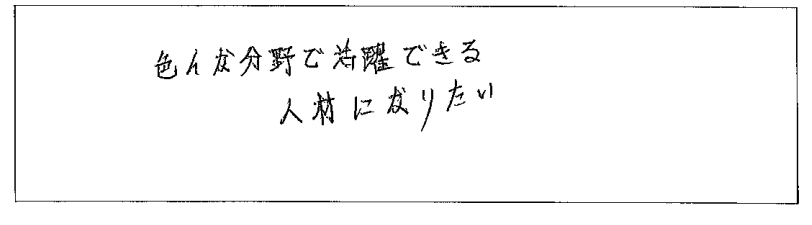 色んな分野で活躍できる
人材になりたい